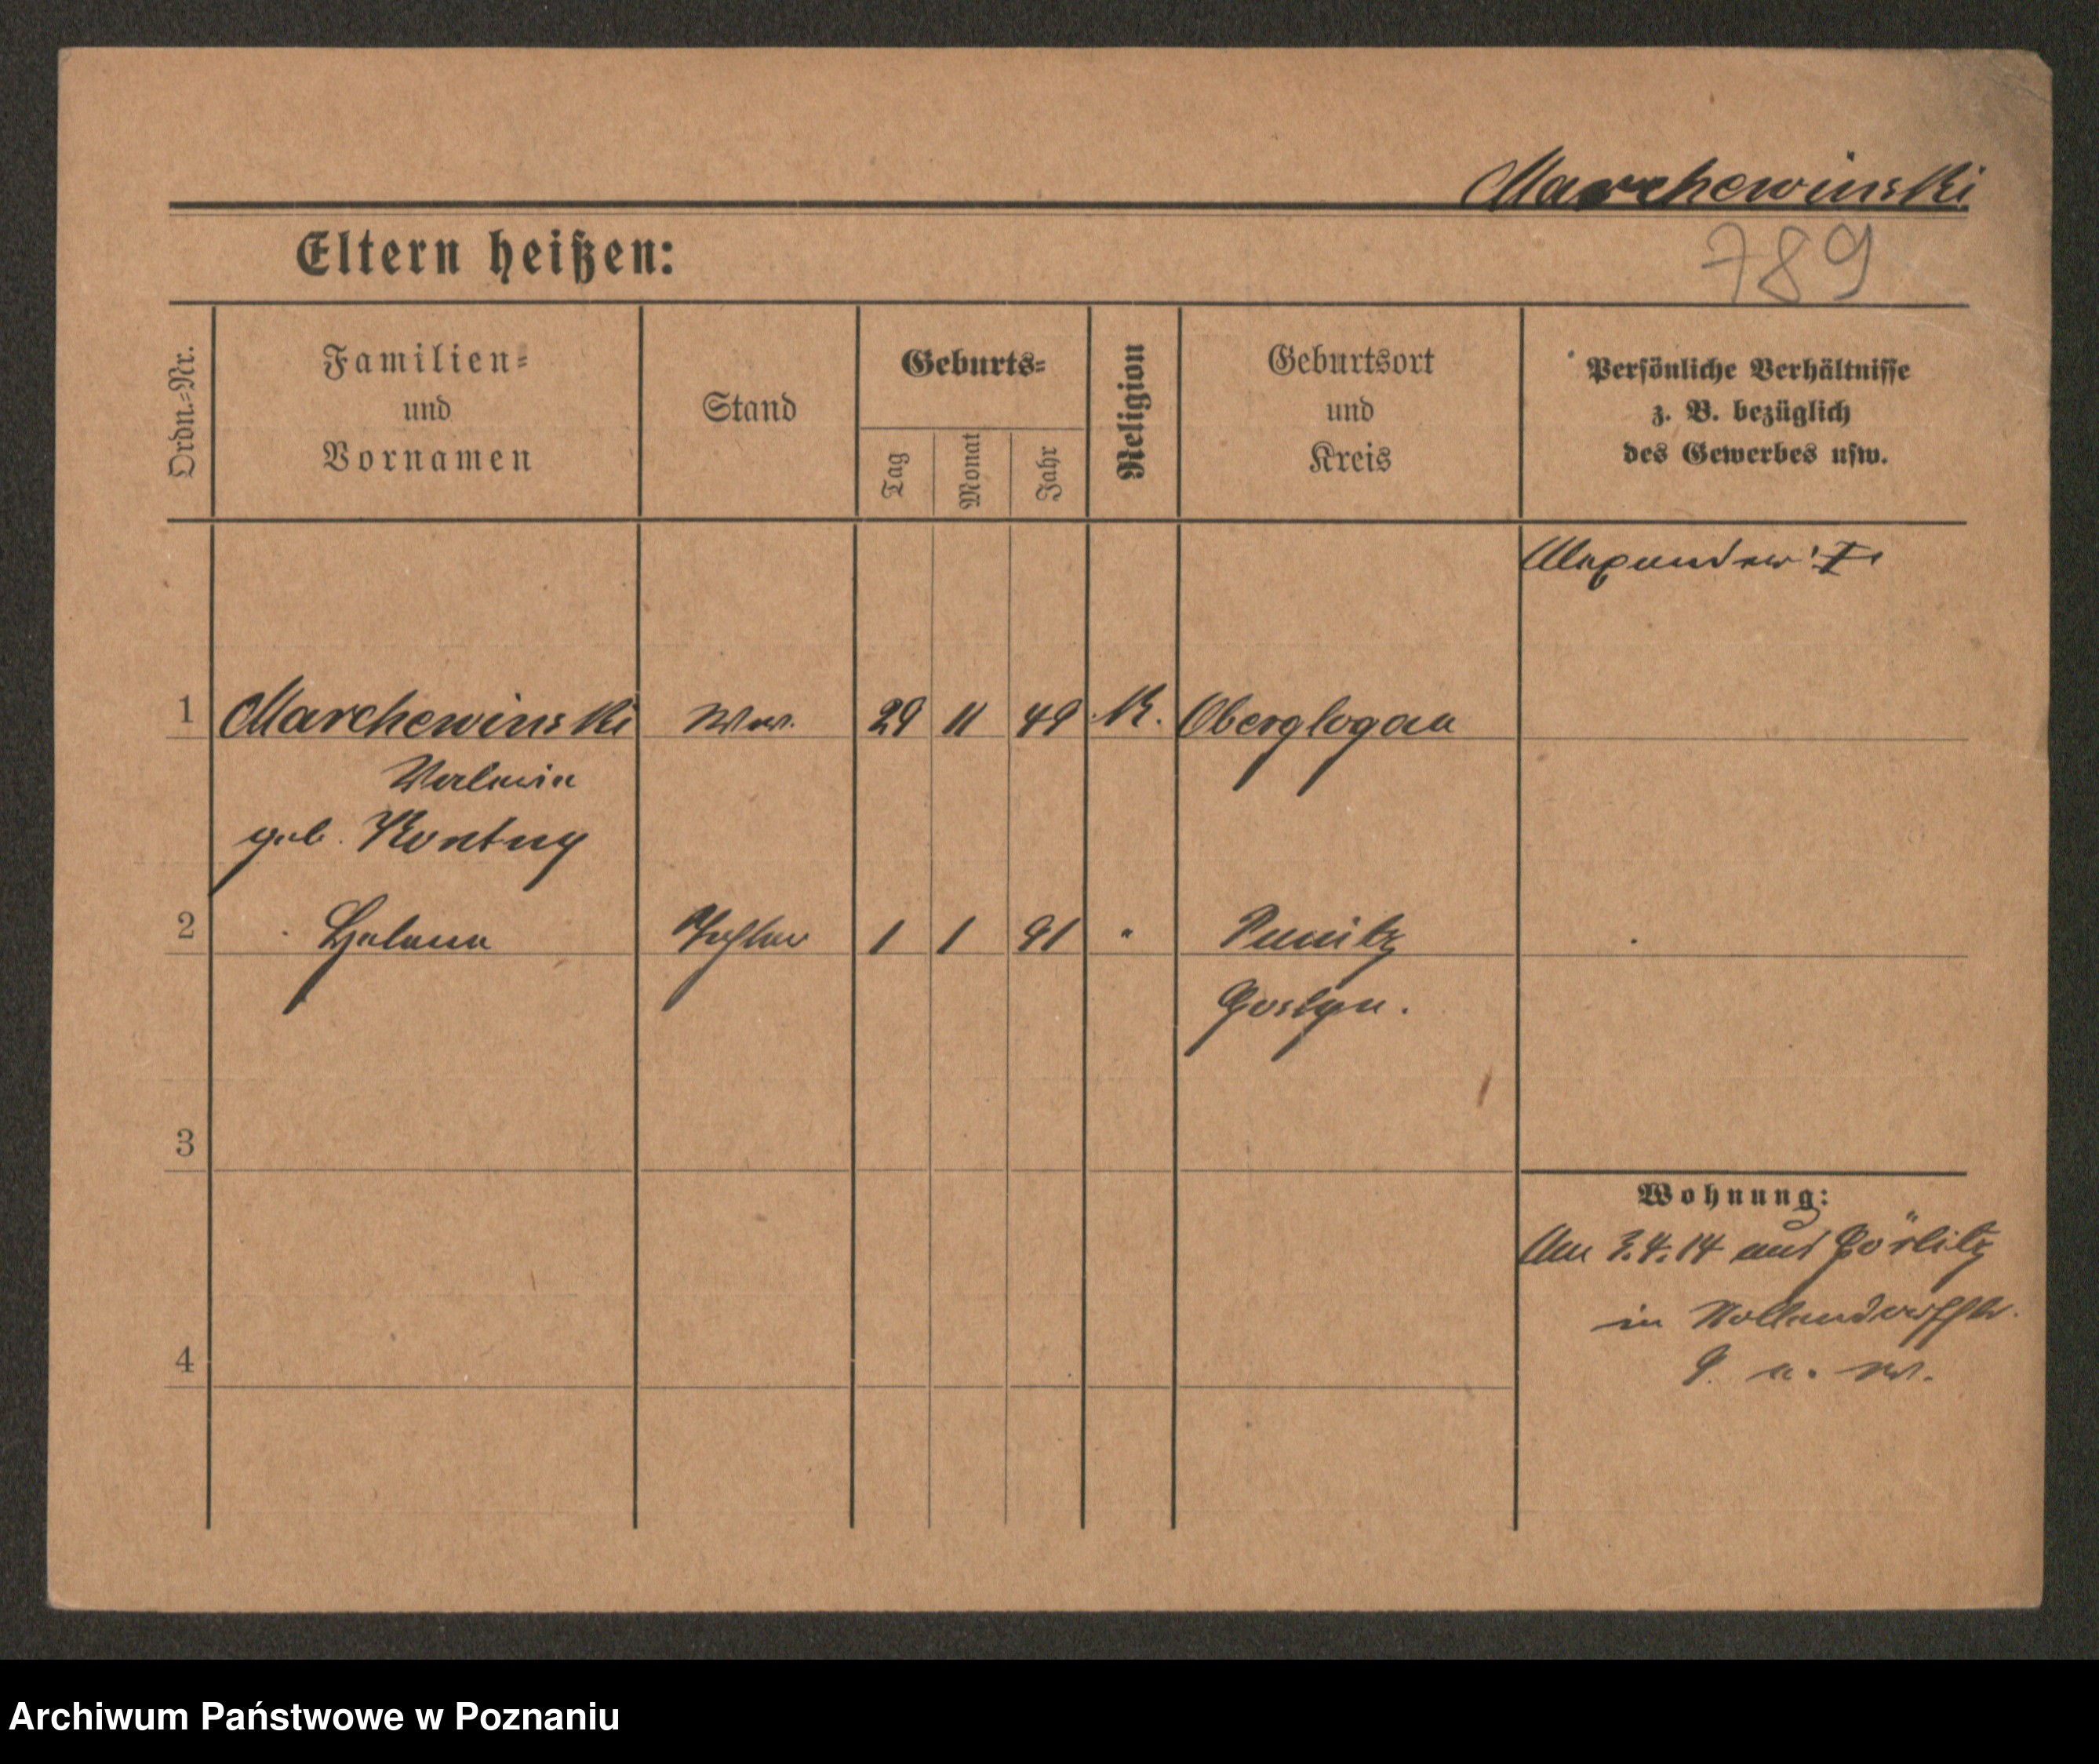 Marchewinski
Eltern heißen:
789
Ordn.-Nr.
Familien-
und
Vornamen
Stand
Geburts-
Tag
Monat
Jahr
Religion
Geburtsort
und
Kreis
Persönliche Verhältnisse
z. B. bezüglich
des Gewerbes usw.
1 Marchewinski Ww. 29 11 49 K. Oberglogau
geb. Kontny
2 Helena Tochter 1 1 91 " Punitz
Gostyn.
3
4
Wohnung:
Am 3.4.14 aus Görlitz
in
Archiwum Państwowe w Poznaniu